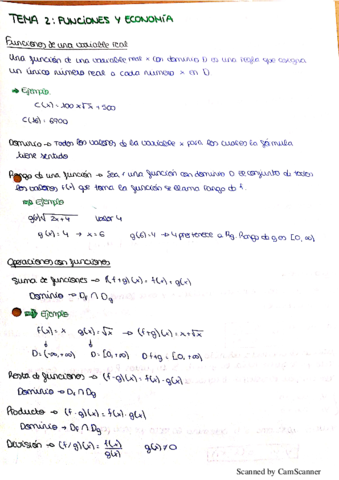 TEMA 2: FUNCIONES Y ECONOMÍA
Funciones de una variable real
Una función de una variable real x con dominio D es una regla que asigna
un único número real a cada número x en D.
⇒ Ejemplo
C(x) = 100x√x + 500
C(16) = 6900
Dominio → Todos los valores de la variable x para los cuales la fórmula
tiene sentido
Rango de una función → Sea f una función con dominio D el conjunto de todos
los valores f(x) que toma la función se llama rango de f.
⇒ Ejemplo
g(x) √2x+4 valor 4
g(x) = 4 → x = 6 g(6) = 4 → 4 pertenece a Rg. Rango de g es [0, ∞)
Operaciones con funciones
Suma de funciones → (f+g)(x) = f(x) + g(x)
Dominio → Df ∩ Dg
⇒ Ejemplo
f(x) = x g(x) = √x → (f+g)(x) = x + √x
D = (-∞, +∞) D = [0, +∞) D f+g = [0, +∞)
Resta de funciones → (f-g)(x) = f(x) - g(x)
Dominio → Df ∩ Dg
Producto → (f·g)(x) = f(x) · g(x)
Dominio → Df ∩ Dg
División → (f/g)(x) = f(x)/g(x) g(x) ≠ 0
Scanned by CamScanner